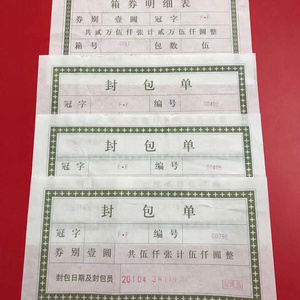 箱券明细表
券别 壹圆 冠字 F·F
共贰万伍仟张计贰万伍仟圆整
箱号 包数 伍
封包单
冠字 F·F 编号
封包单
冠字 F·F 编号
封包单
冠字 F·F 编号
券别 壹圆 共伍仟张计伍仟圆整
封包日期及封包员 2010